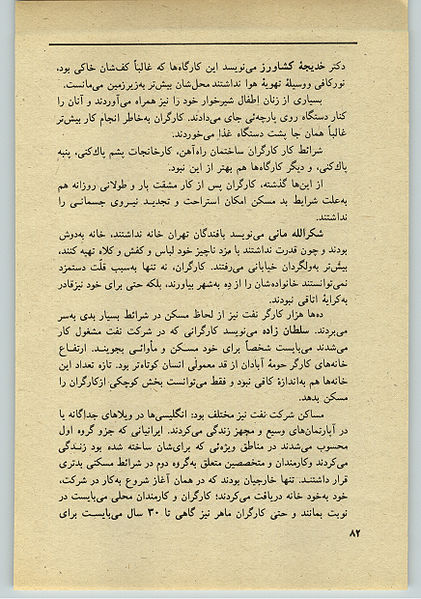 دکتر خدیجهٔ کشاورز می‌نویسد این کارگاه‌ها که غالباً کف‌شان خاکی بود،
نورکافی ووسیلهٔ تهویهٔ هوا نداشتند محل‌شان بیش‌تر به‌زیرزمین می‌مانست.
بسیاری از زنان اطفال شیرخوار خود را نیز همراه می‌آوردند و آنان را
کنار دستگاه روی پارچه‌ئی جای می‌دادند. کارگران به‌خاطر انجام کار بیش‌تر
غالباً همان جا پشت دستگاه غذا می‌خوردند.
شرائط کار کارگران ساختمان راه‌آهن، کارخانجات پشم پاک‌کنی، پنبه
پاک‌کنی، و دیگر کارگاه‌ها هم بهتر از این نبود.
از این‌ها گذشته، کارگران پس از کار مشقت بار و طولانی روزانه هم
به‌علت شرایط بد مسکن امکان استراحت و تجدید نیروی جسمانی را
نداشتند.
شکرالله مانی می‌نویسد بافندگان تهران خانه نداشتند، خانه به‌دوش
بودند و چون قدرت نداشتند با مزد ناچیز خود لباس و کفش و کلاه تهیه کنند،
بیش‌تر به‌ولگردان خیابانی می‌رفتند. کارگران، نه تنها به‌سبب قلّت دستمزد
نمی‌توانستند خانواده‌شان را از دِه به‌شهر بیاورند، بلکه حتی برای خود نیزقادر
به‌کرایهٔ اتاقی نبودند.
ده‌ها هزار کارگر نفت نیز از لحاظ مسکن در شرائط بسیار بدی به‌سر
می‌بردند. سلطان زاده می‌نویسد کارگرانی که در شرکت نفت مشغول کار
می‌شدند می‌بایست شخصاً برای خود مسکن و مأوائی بجویند. ارتفاع
خانه‌های کارگر حومهٔ آبادان از قد معمولی انسان کوتاه‌تر بود. تازه تعداد این
خانه‌ها هم به‌اندازهٔ کافی نبود و فقط می‌توانست بخش کوچکی ازکارگران را
مسکن بدهد.
مساکن شرکت نفت نیز مختلف بود: انگلیسی‌ها در ویلاهای جداگانه یا
در آپارتمان‌های وسیع و مجهز زندگی می‌کردند. ایرانیانی که جزو گروه اول
محسوب می‌شدند در مناطق ویژه‌ئی که برای‌شان ساخته شده بود زندگی
می‌کردند وکارمندان و متخصصین متعلق به‌گروه دوم در شرائط مسکنی بدتری
قرار داشتند. تنها خارجیان بودند که در همان آغاز شروع به‌کار در شرکت،
خود به‌خود خانه دریافت می‌کردند؛ کارگران و کارمندان محلی می‌بایست در
نوبت بمانند و حتی کارگران ماهر نیز گاهی تا ۳۰ سال می‌بایست برای
۸۲